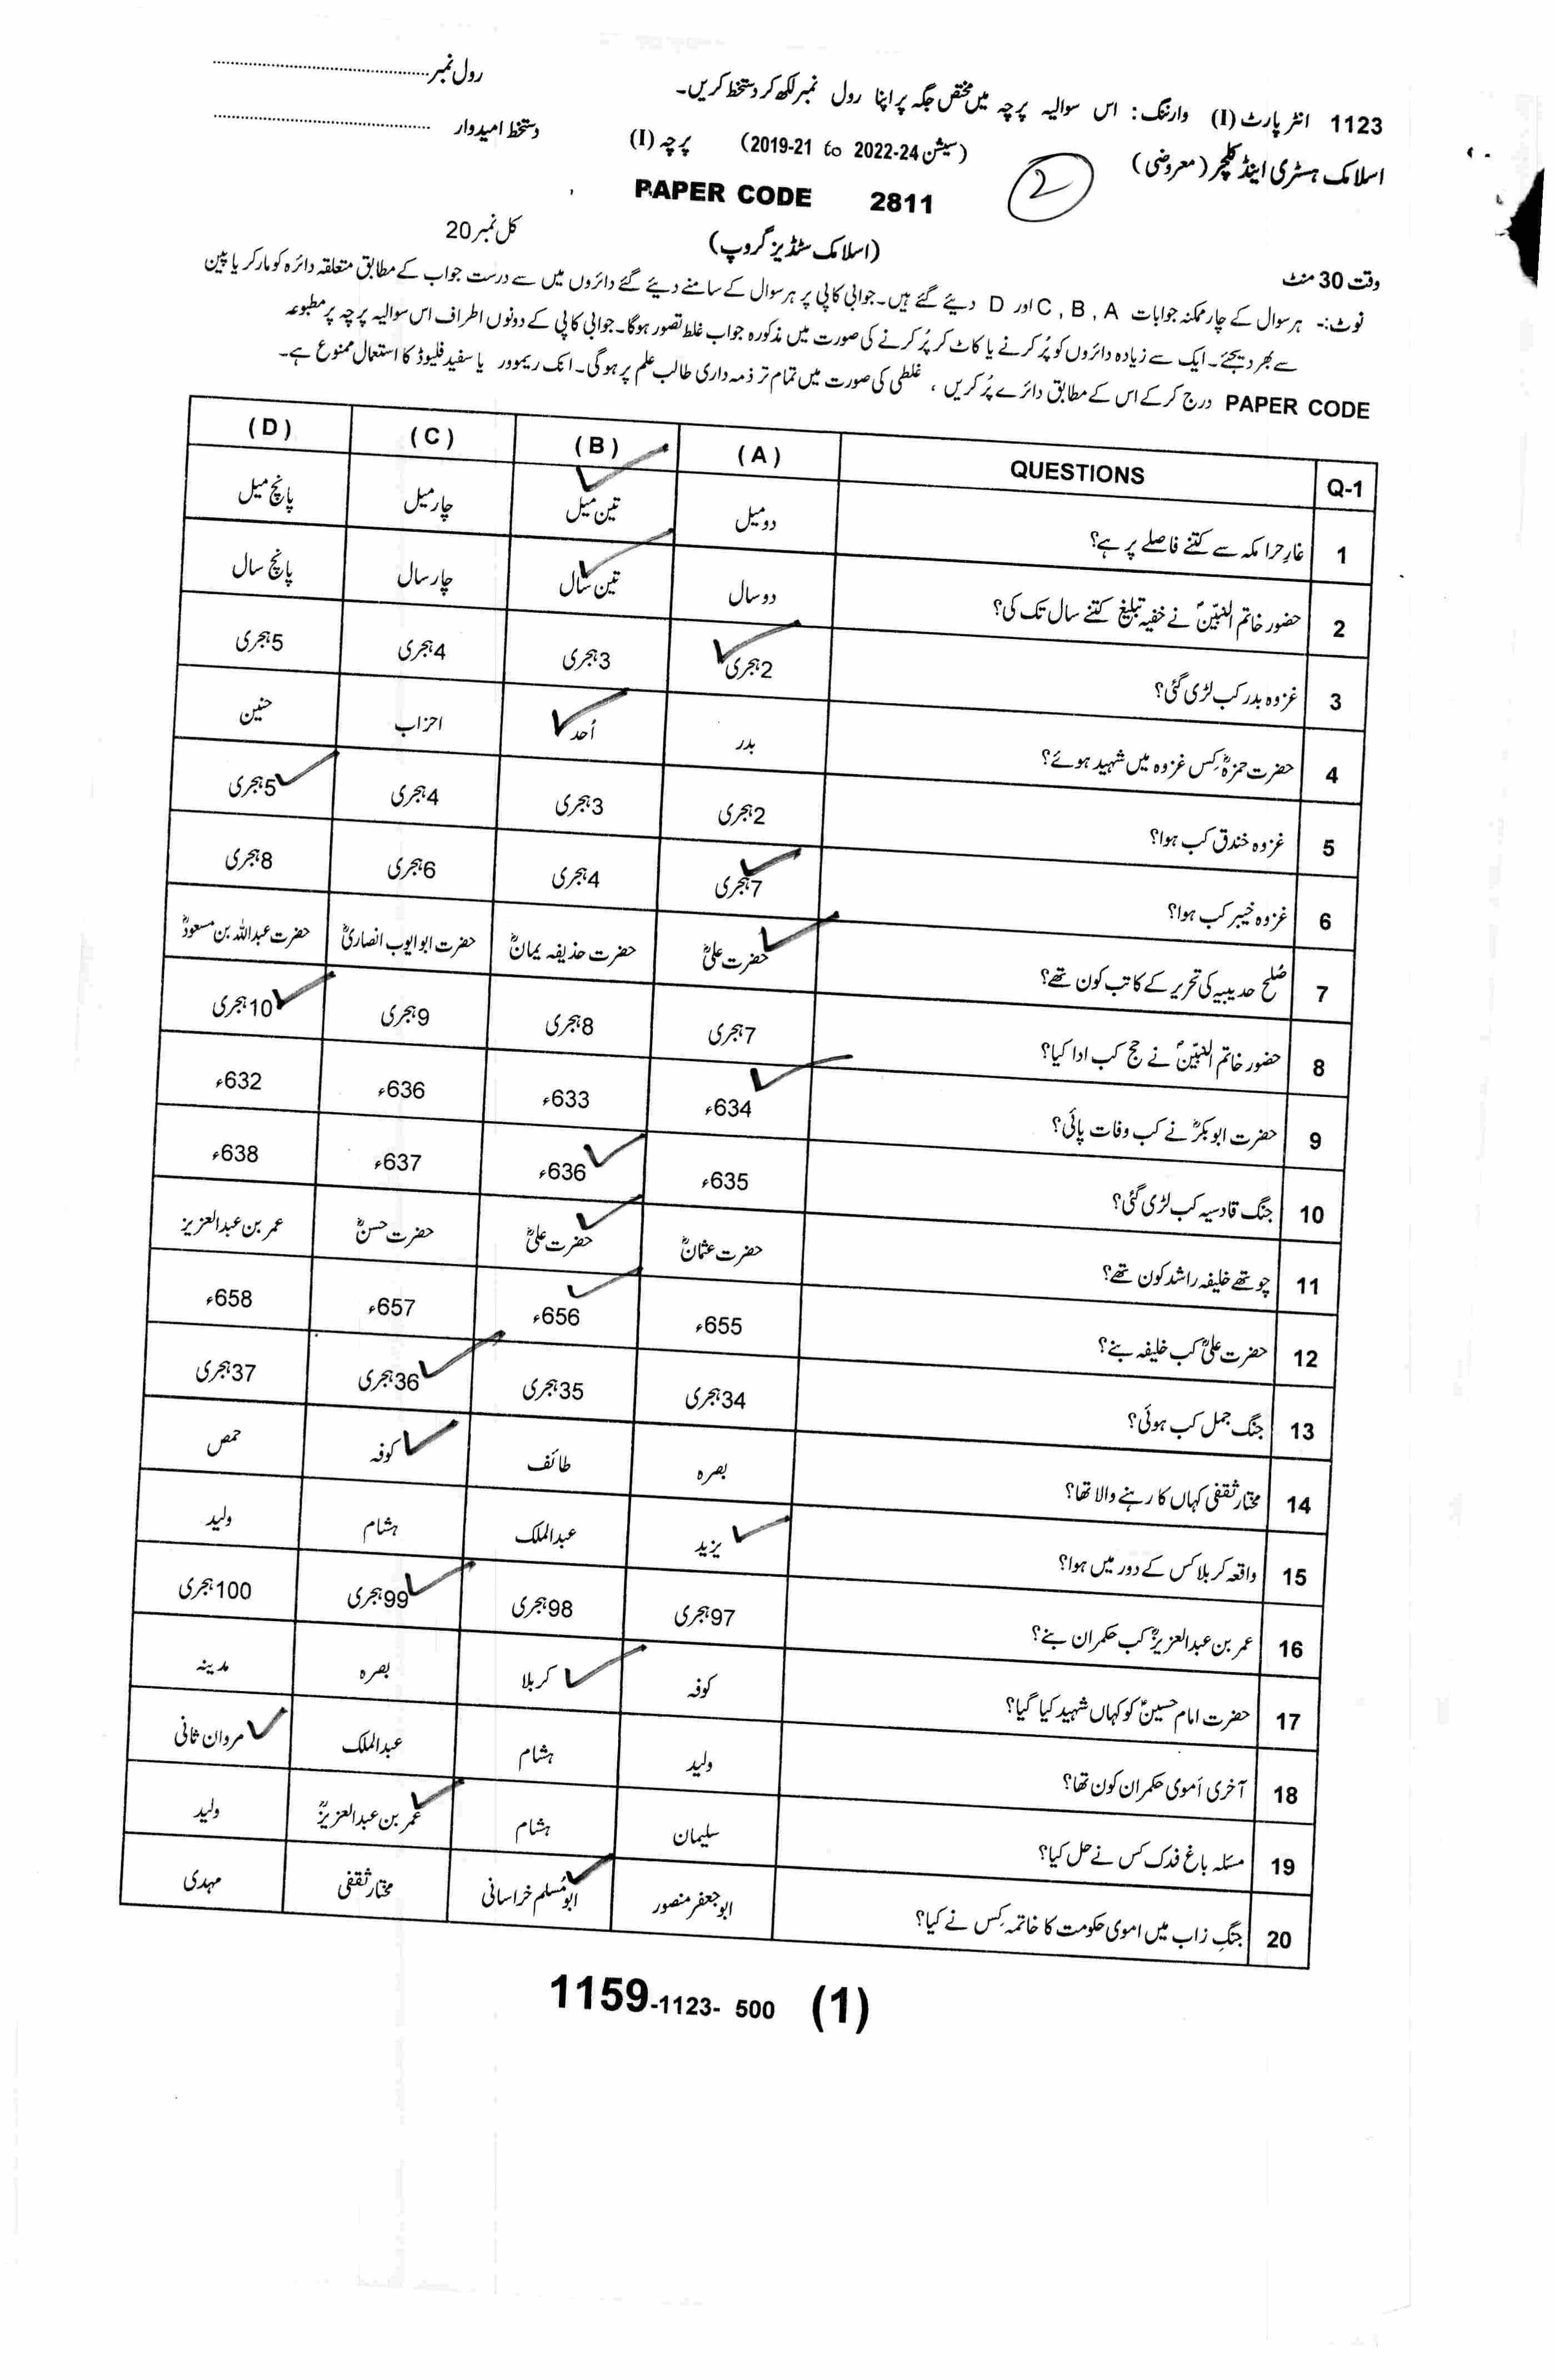 1123 انٹر پارٹ (I) وارننگ: اس سوالیہ پرچہ میں مختص جگہ پر اپنا رول نمبر لکھ کر دستخط کریں۔ رول نمبر
اسلامک ہسٹری اینڈ کلچر (معروضی) (سیشن 2022-24 to 2019-21) پرچہ (I) دستخط امیدوار
2
PAPER CODE 2811
(اسلامک سٹڈیز گروپ) کل نمبر 20
وقت 30 منٹ
نوٹ:- ہر سوال کے چار ممکنہ جوابات A , B , C اور D دیئے گئے ہیں۔ جوابی کاپی پر ہر سوال کے سامنے دیئے گئے دائروں میں سے درست جواب کے مطابق متعلقہ دائرہ کو مارکر یا پین
سے بھر دیجئے۔ ایک سے زیادہ دائروں کو پُر کرنے یا کاٹ کر پُر کرنے کی صورت میں مذکورہ جواب غلط تصور ہوگا۔ جوابی کاپی کے دونوں اطراف اس سوالیہ پرچہ پر مطبوعہ
PAPER CODE درج کر کے اس کے مطابق دائرے پُر کریں ، غلطی کی صورت میں تمام تر ذمہ داری طالب علم پر ہوگی۔ انک ریموور یا سفید فلیوڈ کا استعمال ممنوع ہے۔
Q-1 QUESTIONS (A) (B) (C) (D)
1 غارِ حرا مکہ سے کتنے فاصلے پر ہے؟ دو میل تین میل چار میل پانچ میل
2 حضور خاتم النبیّنؐ نے خفیہ تبلیغ کتنے سال تک کی؟ دو سال تین سال چار سال پانچ سال
3 غزوہ بدر کب لڑی گئی؟ 2ہجری 3ہجری 4ہجری 5ہجری
4 حضرت حمزہؓ کِس غزوہ میں شہید ہوئے؟ بدر اُحد احزاب حنین
5 غزوہ خندق کب ہوا؟ 2ہجری 3ہجری 4ہجری 5ہجری
6 غزوہ خیبر کب ہوا؟ 7ہجری 4ہجری 6ہجری 8ہجری
7 صُلح حدیبیہ کی تحریر کے کاتب کون تھے؟ حضرت علیؓ حضرت حذیفہ یمانؓ حضرت ابو ایوب انصاریؓ حضرت عبداللہ بن مسعودؓ
8 حضور خاتم النبیّنؐ نے حج کب ادا کیا؟ 7ہجری 8ہجری 9ہجری 10ہجری
9 حضرت ابوبکرؓ نے کب وفات پائی؟ 634ء 633ء 636ء 632ء
10 جنگ قادسیہ کب لڑی گئی؟ 635ء 636ء 637ء 638ء
11 چوتھے خلیفہ راشد کون تھے؟ حضرت عثمانؓ حضرت علیؓ حضرت حسنؓ عمر بن عبدالعزیز
12 حضرت علیؓ کب خلیفہ بنے؟ 655ء 656ء 657ء 658ء
13 جنگ جمل کب ہوئی؟ 34ہجری 35ہجری 36ہجری 37ہجری
14 مختار ثقفی کہاں کا رہنے والا تھا؟ بصرہ طائف کوفہ حمص
15 واقعہ کربلا کس کے دور میں ہوا؟ یزید عبدالملک ہشام ولید
16 عمر بن عبدالعزیزؒ کب حکمران بنے؟ 97ہجری 98ہجری 99ہجری 100ہجری
17 حضرت امام حسینؑ کو کہاں شہید کیا گیا؟ کوفہ کربلا بصرہ مدینہ
18 آخری اُموی حکمران کون تھا؟ ولید ہشام عبدالملک مروان ثانی
19 مسئلہ باغ فدک کس نے حل کیا؟ سلیمان ہشام عمر بن عبدالعزیزؒ ولید
20 جنگِ زاب میں اموی حکومت کا خاتمہ کِس نے کیا؟ ابو جعفر منصور ابو مُسلم خراسانی مختار ثقفی مہدی
1159-1123- 500 (1)